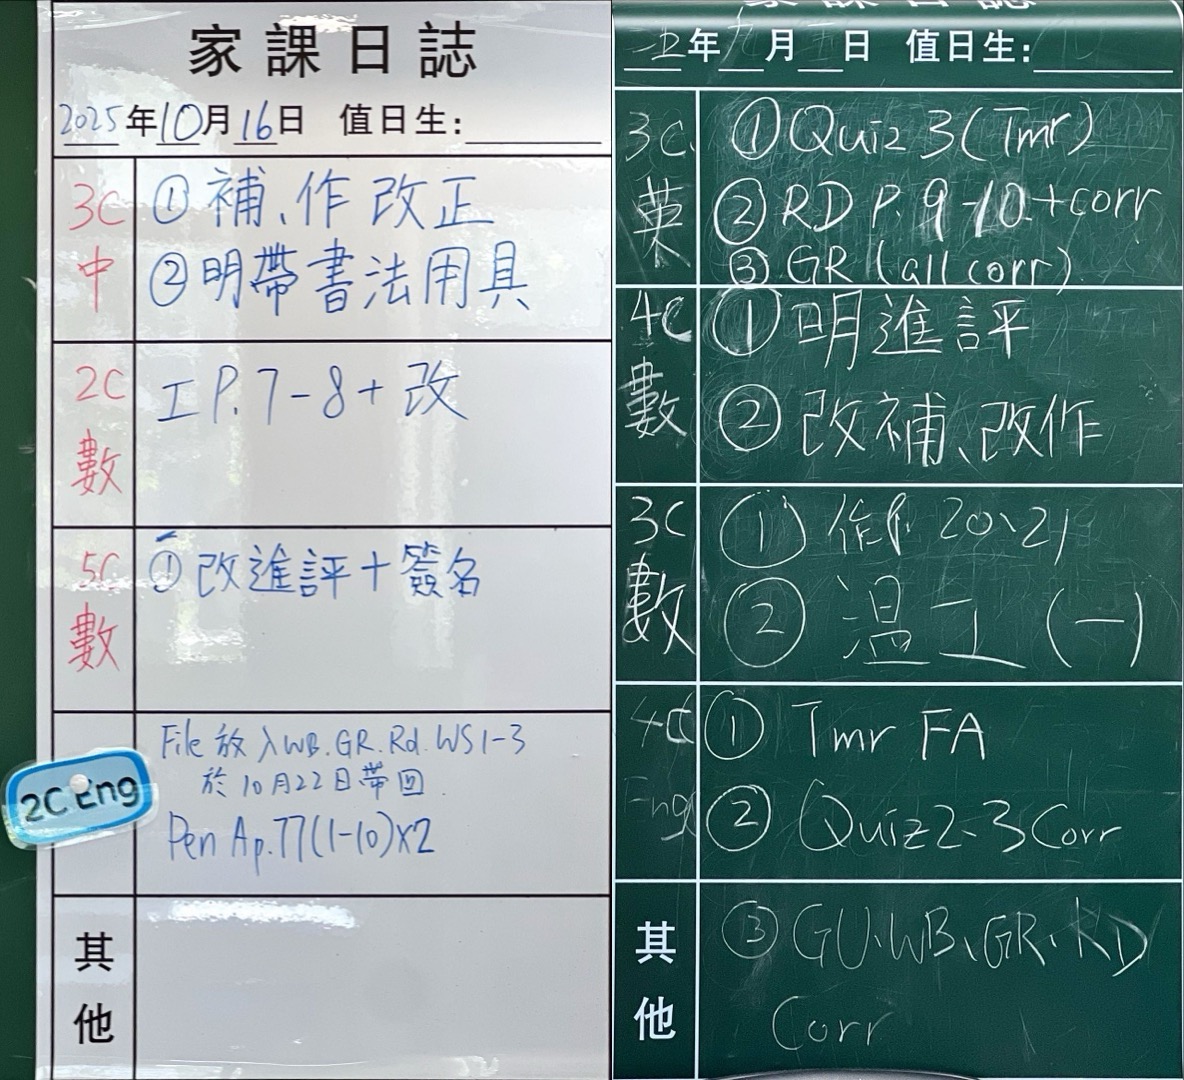 家課日誌
2025年10月16日 值日生:
3C
中
①補、作改正
②明帶書法用具
2C
數
工P.7-8+改
5C
數
①改進評+簽名
2C Eng
File 放入WB.GR.Rd.WS1-3
於10月22日帶回
Pen A p.77(1-10)x2
其
他
家課日誌
年 月 日 值日生:
3C
英
①Quiz 3(Tmr)
②RD P.9-10+corr
③GR (all corr)
4C
數
①明進評
②改補、改作
3C
數
①作P 20、21
②溫工(一)
4C
Eng
①Tmr FA
②Quiz2-3Corr
其
他
③GU、WB、GR、RD
Corr